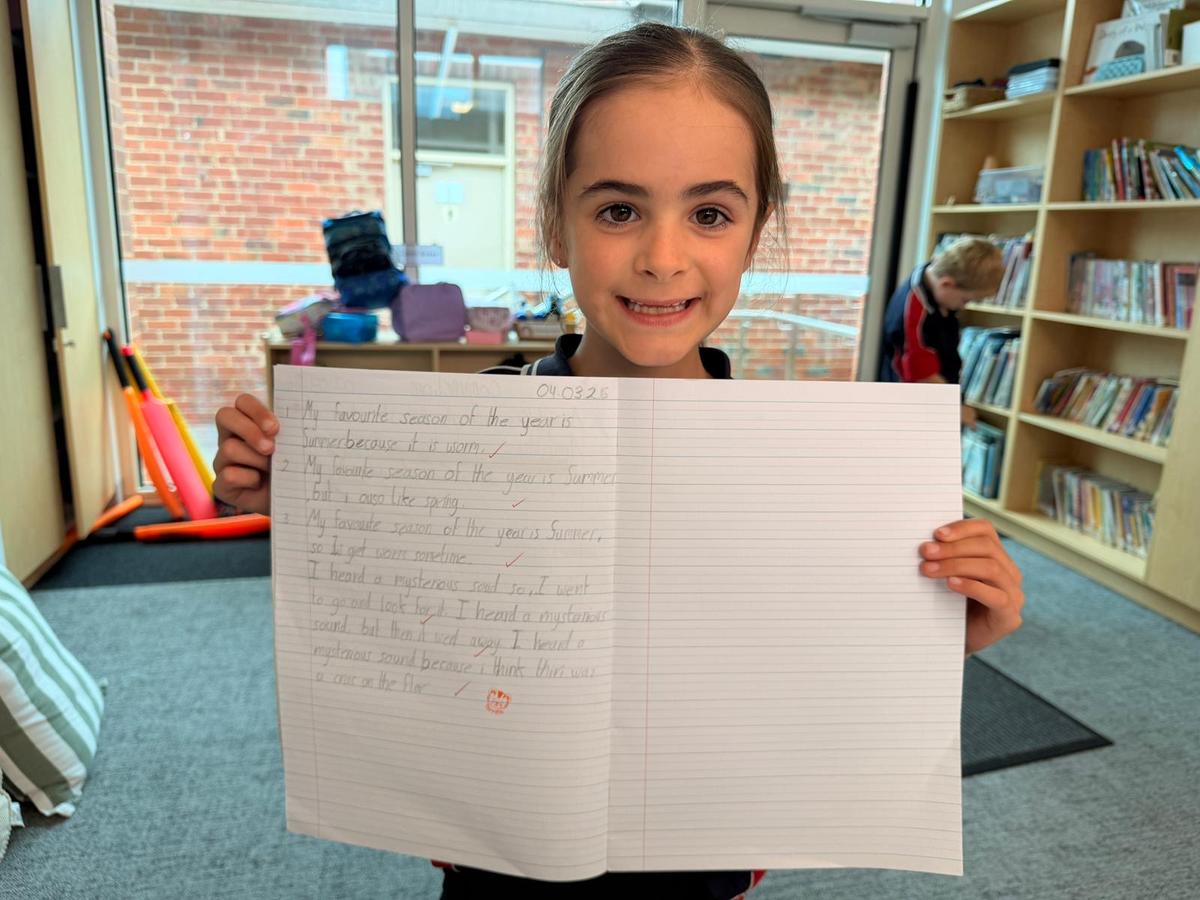 04.03.25
1. My favourite season of the year is
Summer because it is worm.
2. My favourite season of the year is Summer
, but i auso like spring.
3. My favourite season of the year is Summer,
so I get worm sometime.
I heard a mysterious soud so, I went
to go and look for it. I heard a mysterious
sound, but then it went away. I heard a
mysterious sound because i think thiri was
a crac on the flor